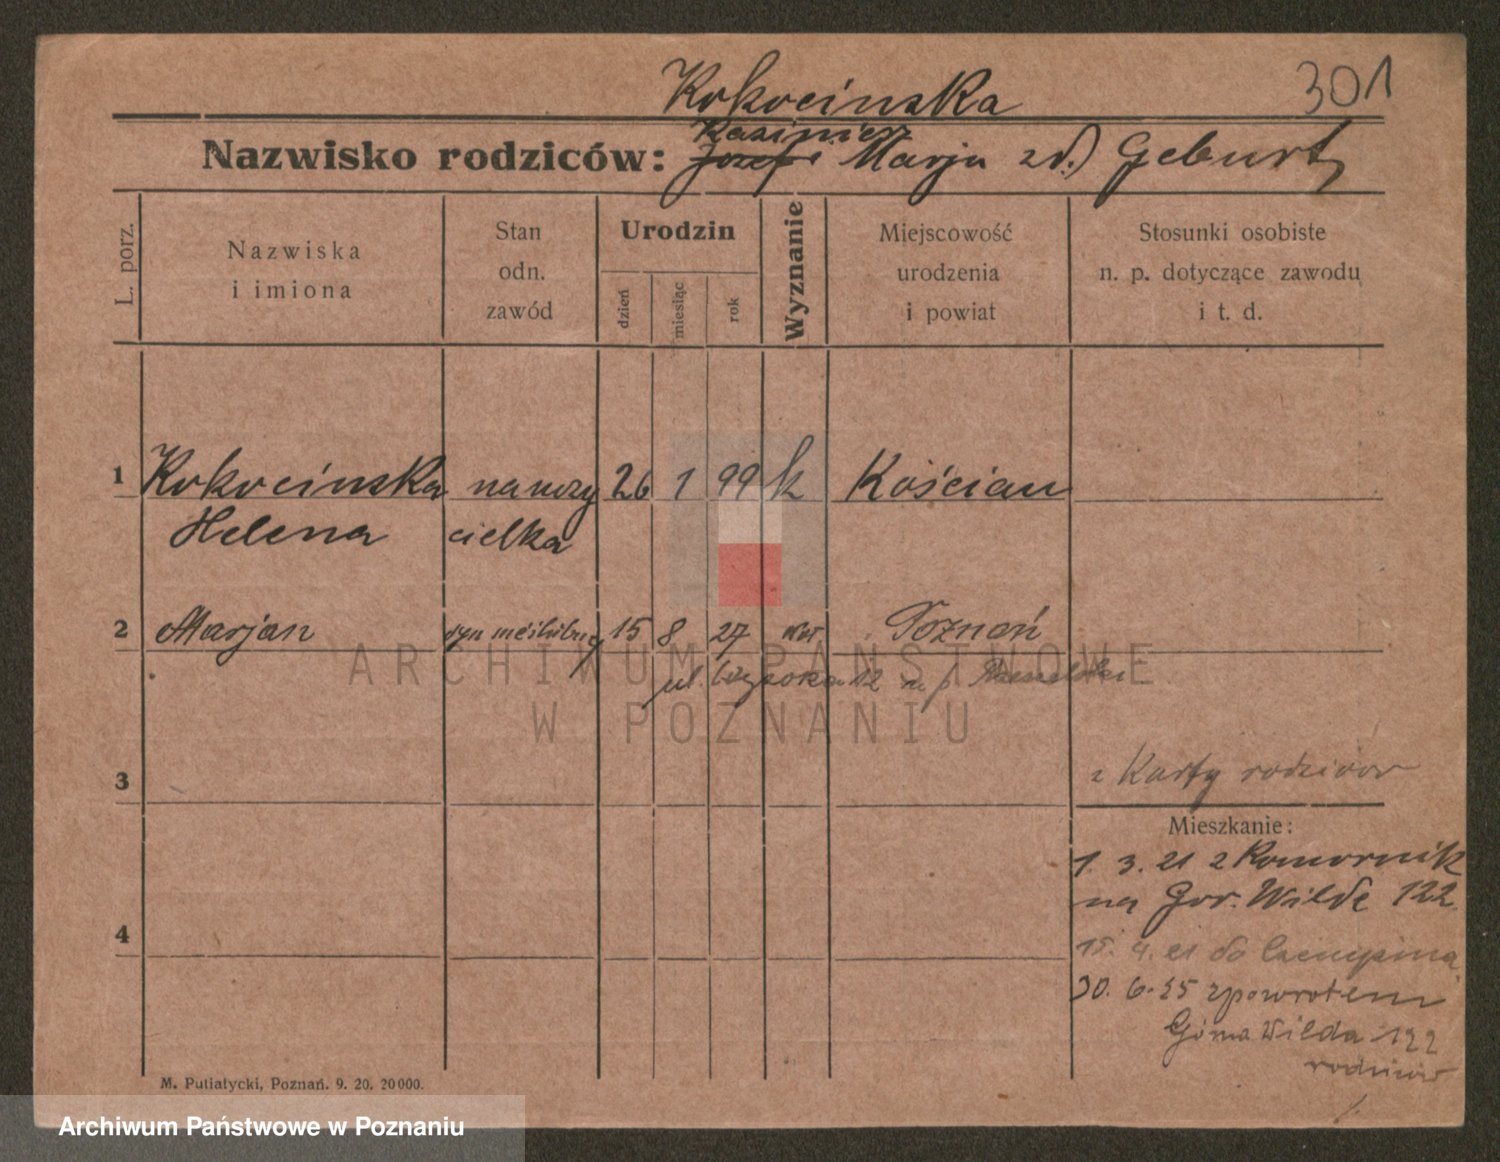 Kokocinska 301
Kazimierz
Nazwisko rodziców: Józef i Marja zd.) Geburt
L. porz.
Nazwiska
i imiona
Stan
odn.
zawód
Urodzin
dzień
miesiąc
rok
Wyznanie
Miejscowość
urodzenia
i powiat
Stosunki osobiste
n. p. dotyczące zawodu
i t. d.
1 Kokocinska nauczy 26 1 99 k Kościan
Helena cielka
2 Marjan syn nieślubny 15 8 27 Poznań
ul. Wysoka 12 u p.
ARCHIWUM PAŃSTWOWE
W POZNANIU
3
z Karty rodziców
Mieszkanie:
1. 3. 21 z Komornik
na Gor. Wilde 122
4
15. 9. 21 do Czempinia
30. 6. 25 zpowrotem
Górna Wilda 122
rodziców
M. Putiatycki, Poznań. 9. 20. 20000.
Archiwum Państwowe w Poznaniu